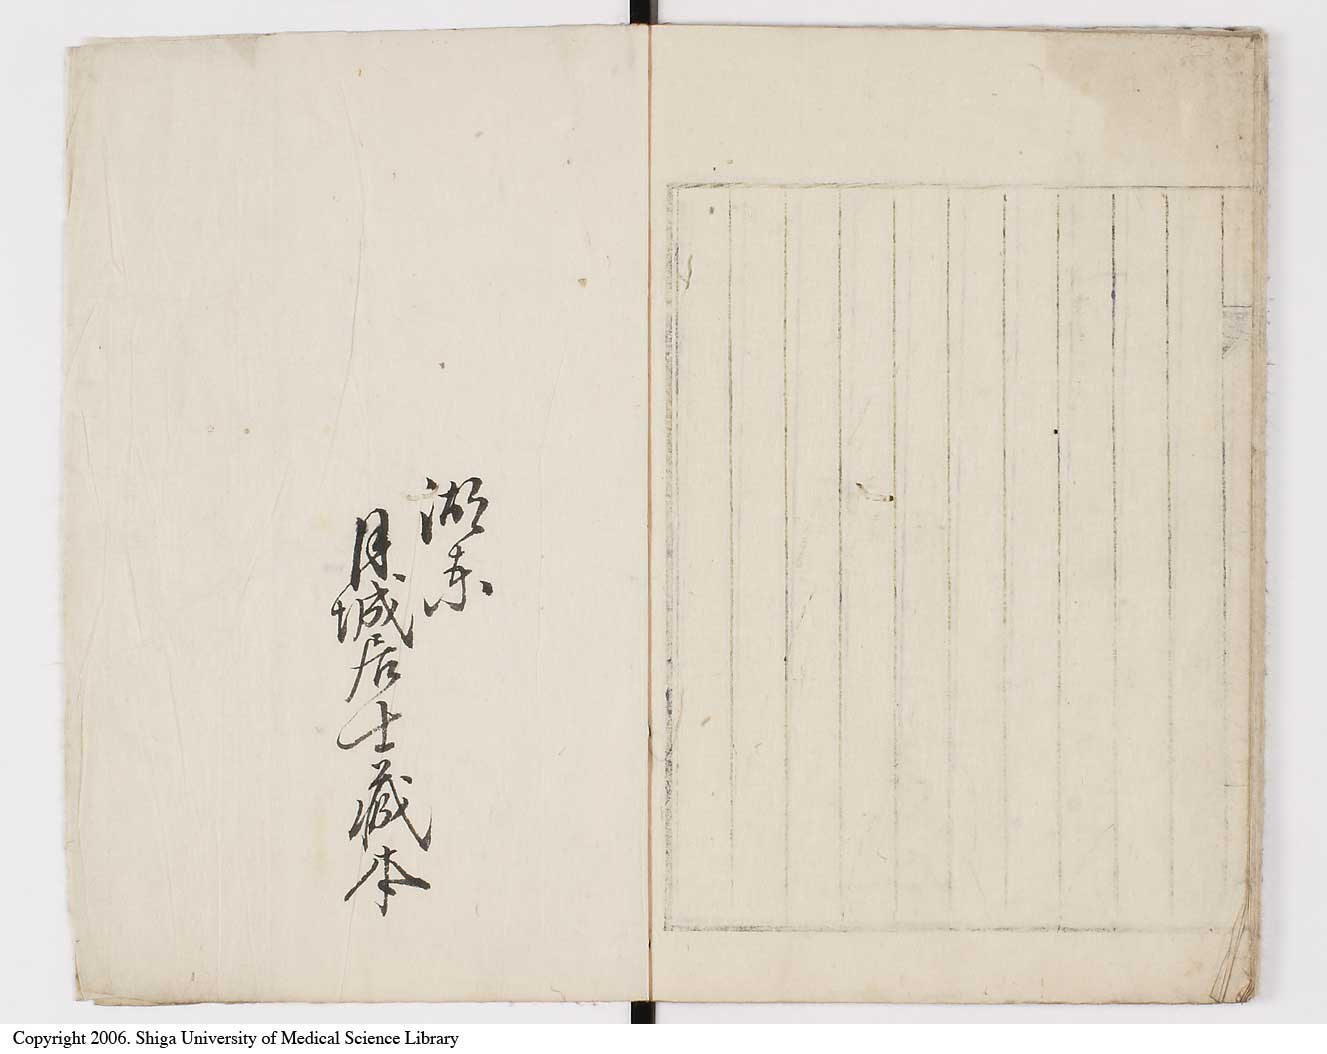 湖東
月城居士蔵本
Copyright 2006. Shiga University of Medical Science Library